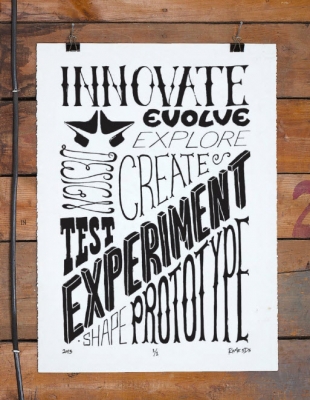 INNOVATE
EVOLVE
EXPLORE
DESIGN
CREATE
TEST
EXPERIMENT
SHAPE
PROTOTYPE
2013
1/2